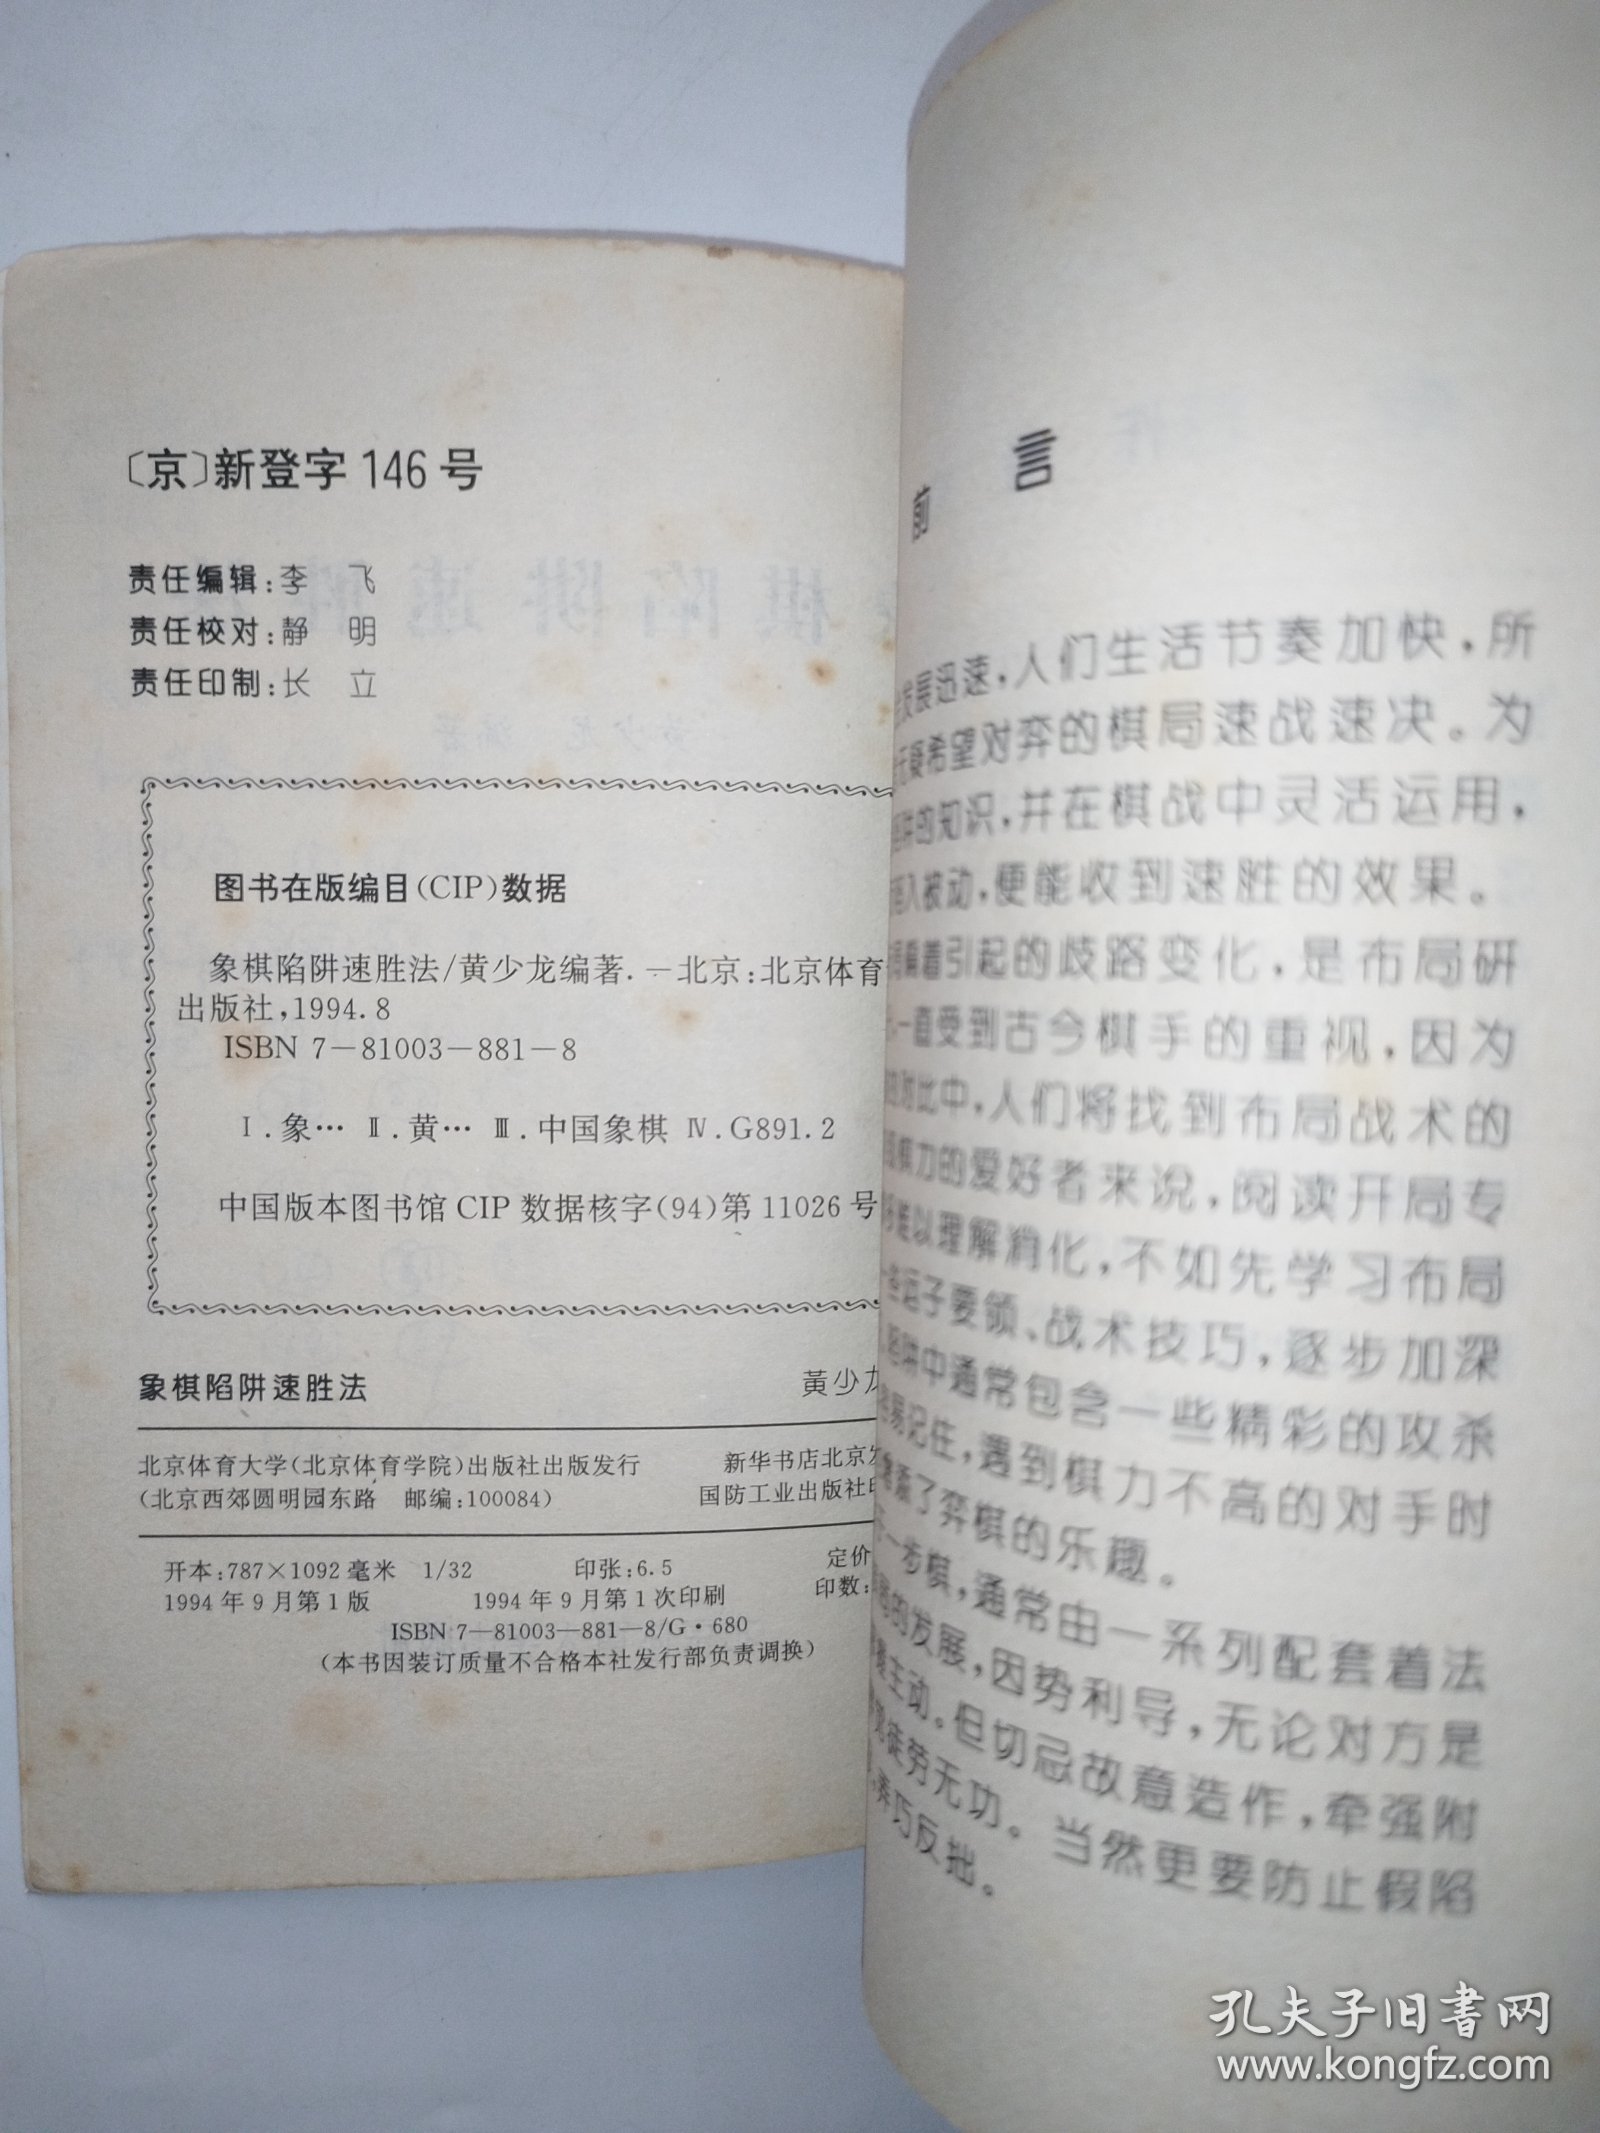 〔京〕新登字 146 号
责任编辑:李 飞
责任校对:静 明
责任印制:长 立
图书在版编目(CIP)数据
象棋陷阱速胜法/黄少龙编著.—北京:北京体育
出版社,1994.8
ISBN 7—81003—881—8
Ⅰ.象… Ⅱ.黄… Ⅲ.中国象棋 Ⅳ.G891.2
中国版本图书馆 CIP 数据核字(94)第 11026 号
象棋陷阱速胜法 黄少龙
北京体育大学(北京体育学院)出版社出版发行 新华书店北京发
(北京西郊圆明园东路 邮编:100084) 国防工业出版社印
开本:787×1092 毫米 1/32 印张:6.5 定价
1994 年 9 月第 1 版 1994 年 9 月第 1 次印刷 印数:
ISBN 7—81003—881—8/G·680
(本书因装订质量不合格本社发行部负责调换)
前 言
发展迅速,人们生活节奏加快,所
无疑希望对弈的棋局速战速决。为
阱的知识,并在棋战中灵活运用,
陷入被动,便能收到速胜的效果。
骗着引起的歧路变化,是布局研
一直受到古今棋手的重视,因为
对比中,人们将找到布局战术的
棋力的爱好者来说,阅读开局专
难以理解消化,不如先学习布局
一些运子要领、战术技巧,逐步加深
陷阱中通常包含一些精彩的攻杀
易记住,遇到棋力不高的对手时
增添了弈棋的乐趣。
一步棋,通常由一系列配套着法
的发展,因势利导,无论对方是
主动。但切忌故意造作,牵强附
徒劳无功。当然更要防止假陷
弄巧反拙。
孔夫子旧书网
www.kongfz.com